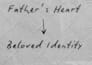 Father's Heart
↓
Beloved Identity